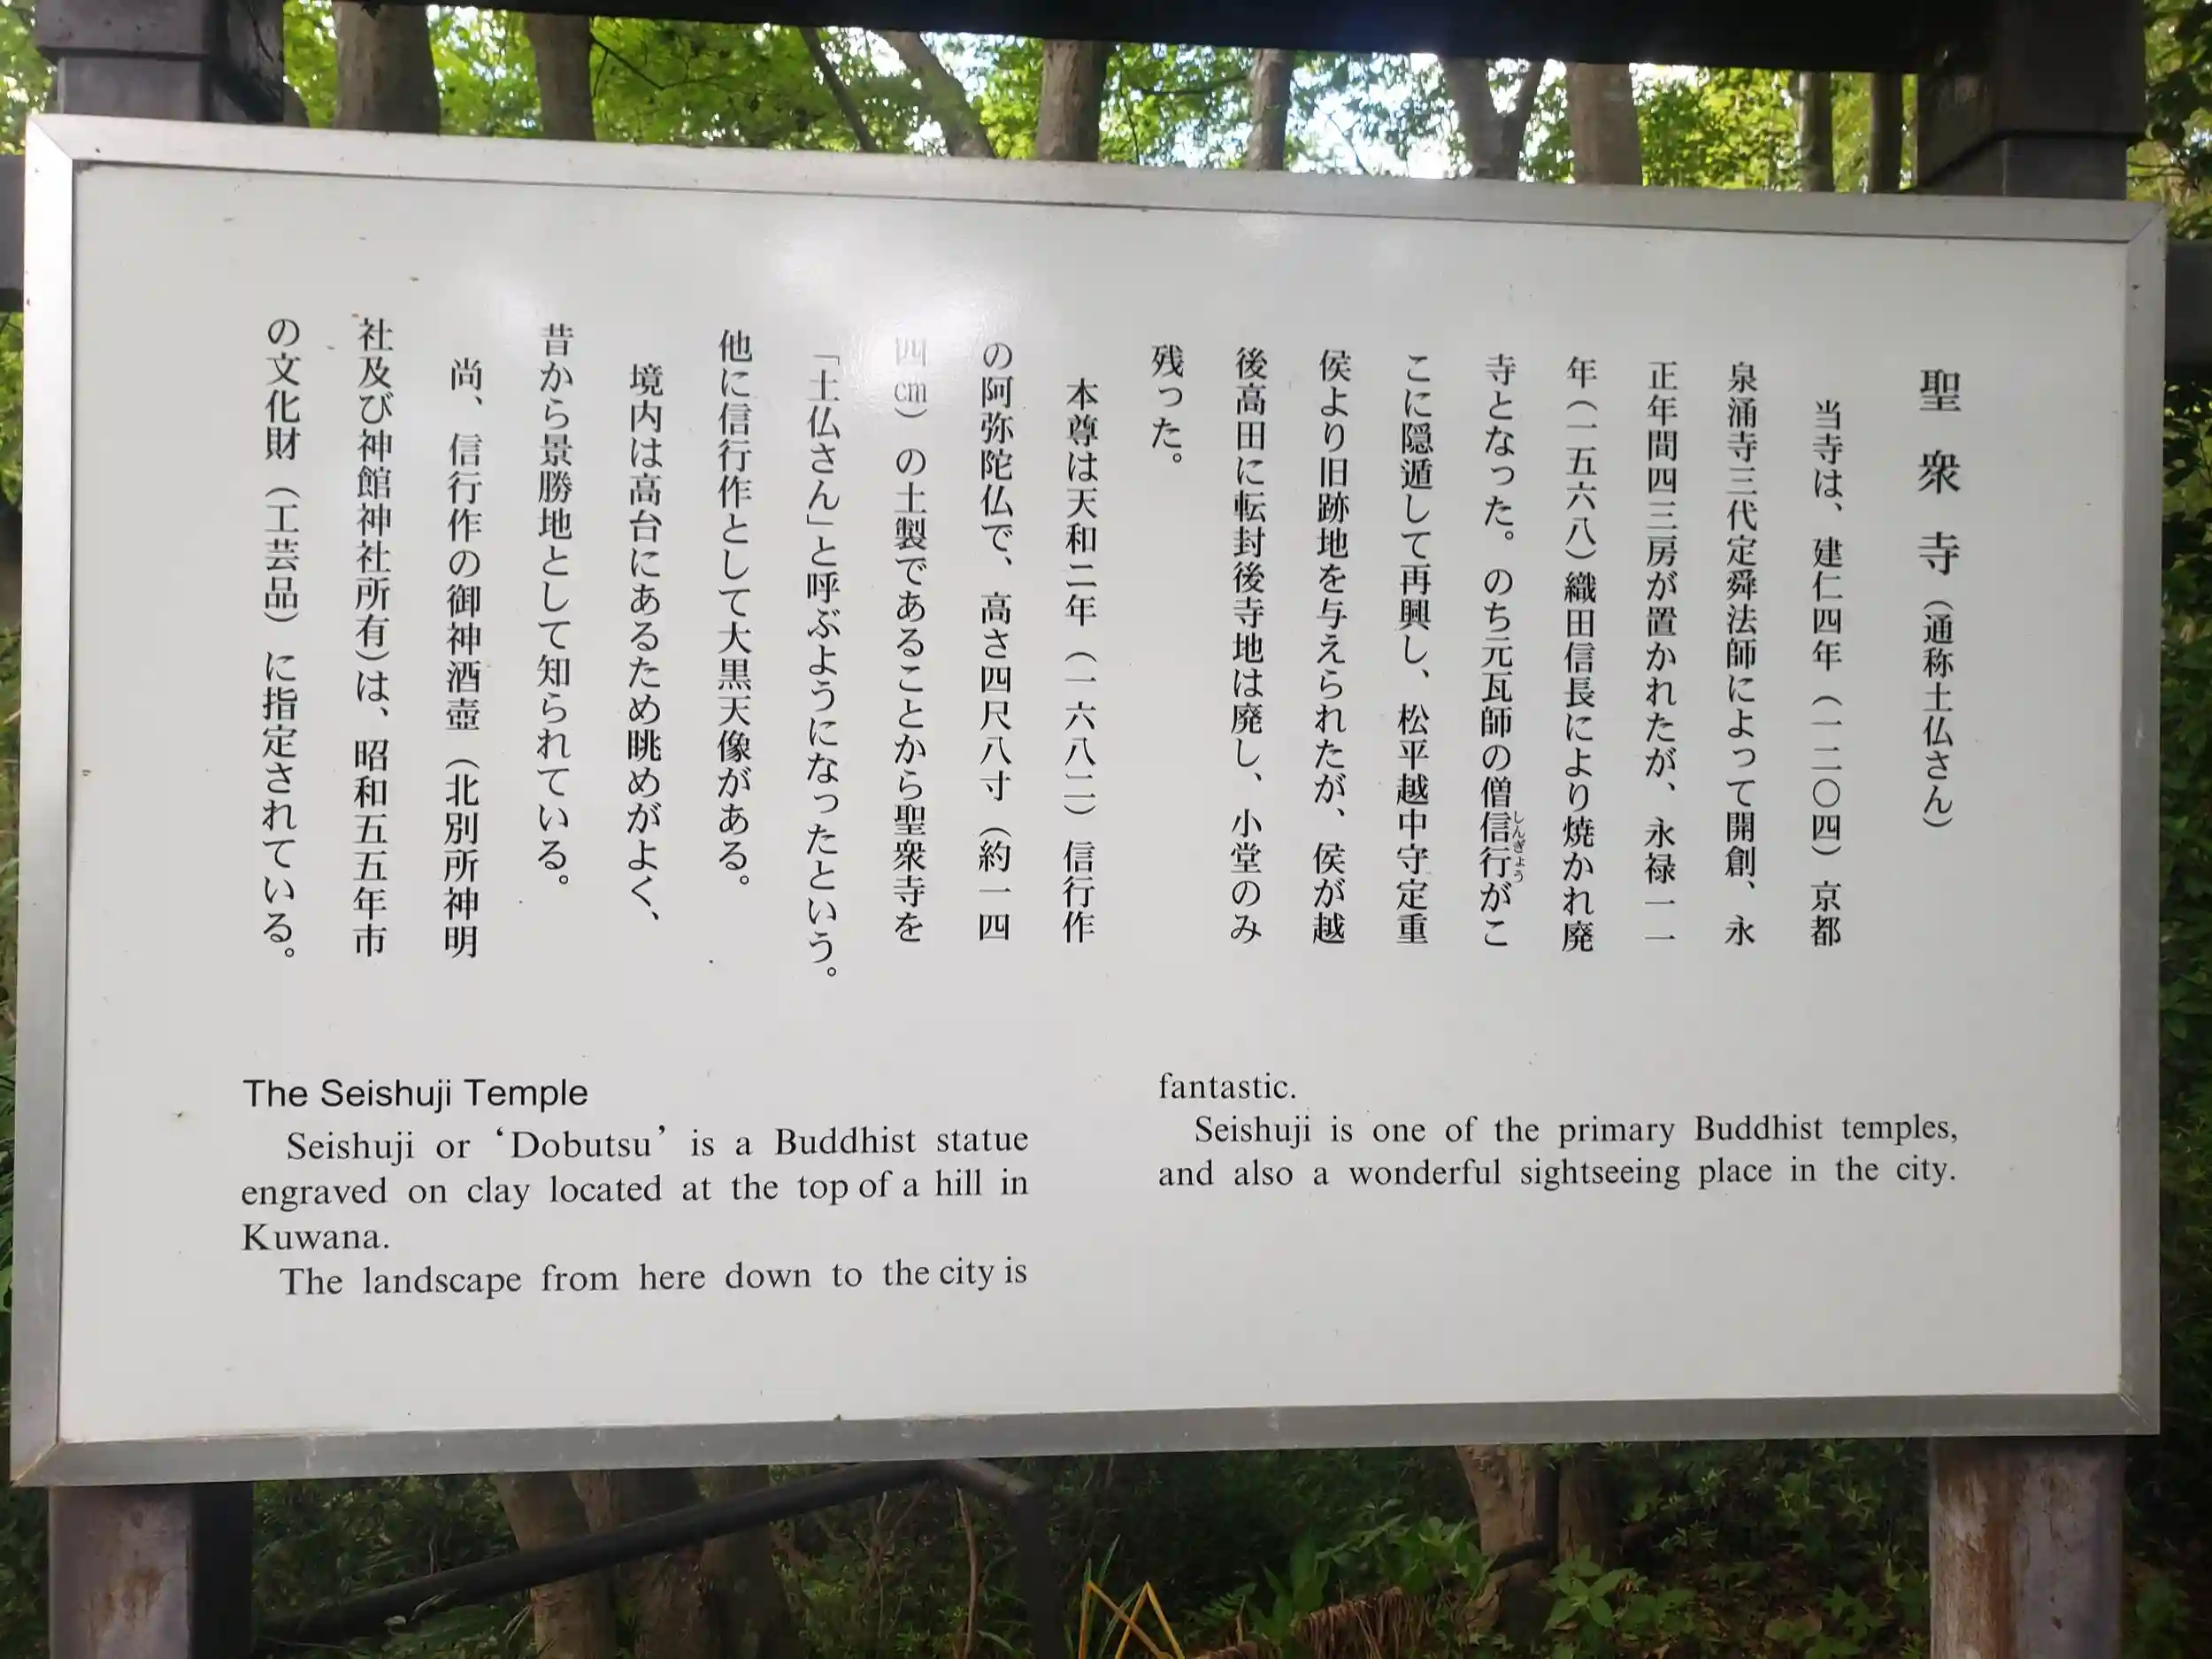 聖衆寺（通称土仏さん）
当寺は、建仁四年（一二〇四）京都
泉涌寺三代定舜法師によって開創、永
正年間四三房が置かれたが、永禄一一
年（一五六八）織田信長により焼かれ廃
寺となった。のち元瓦師の僧信行がこ
しんぎょう
こに隠遁して再興し、松平越中守定重
侯より旧跡地を与えられたが、侯が越
後高田に転封後寺地は廃し、小堂のみ
残った。
本尊は天和二年（一六八二）信行作
の阿弥陀仏で、高さ四尺八寸（約一四
四cm）の土製であることから聖衆寺を
「土仏さん」と呼ぶようになったという。
他に信行作として大黒天像がある。
境内は高台にあるため眺めがよく、
昔から景勝地として知られている。
尚、信行作の御神酒壺（北別所神明
社及び神館神社所有）は、昭和五五年市
の文化財（工芸品）に指定されている。
The Seishuji Temple
Seishuji or ‘Dobutsu’ is a Buddhist statue
engraved on clay located at the top of a hill in
Kuwana.
The landscape from here down to the city is
fantastic.
Seishuji is one of the primary Buddhist temples,
and also a wonderful sightseeing place in the city.